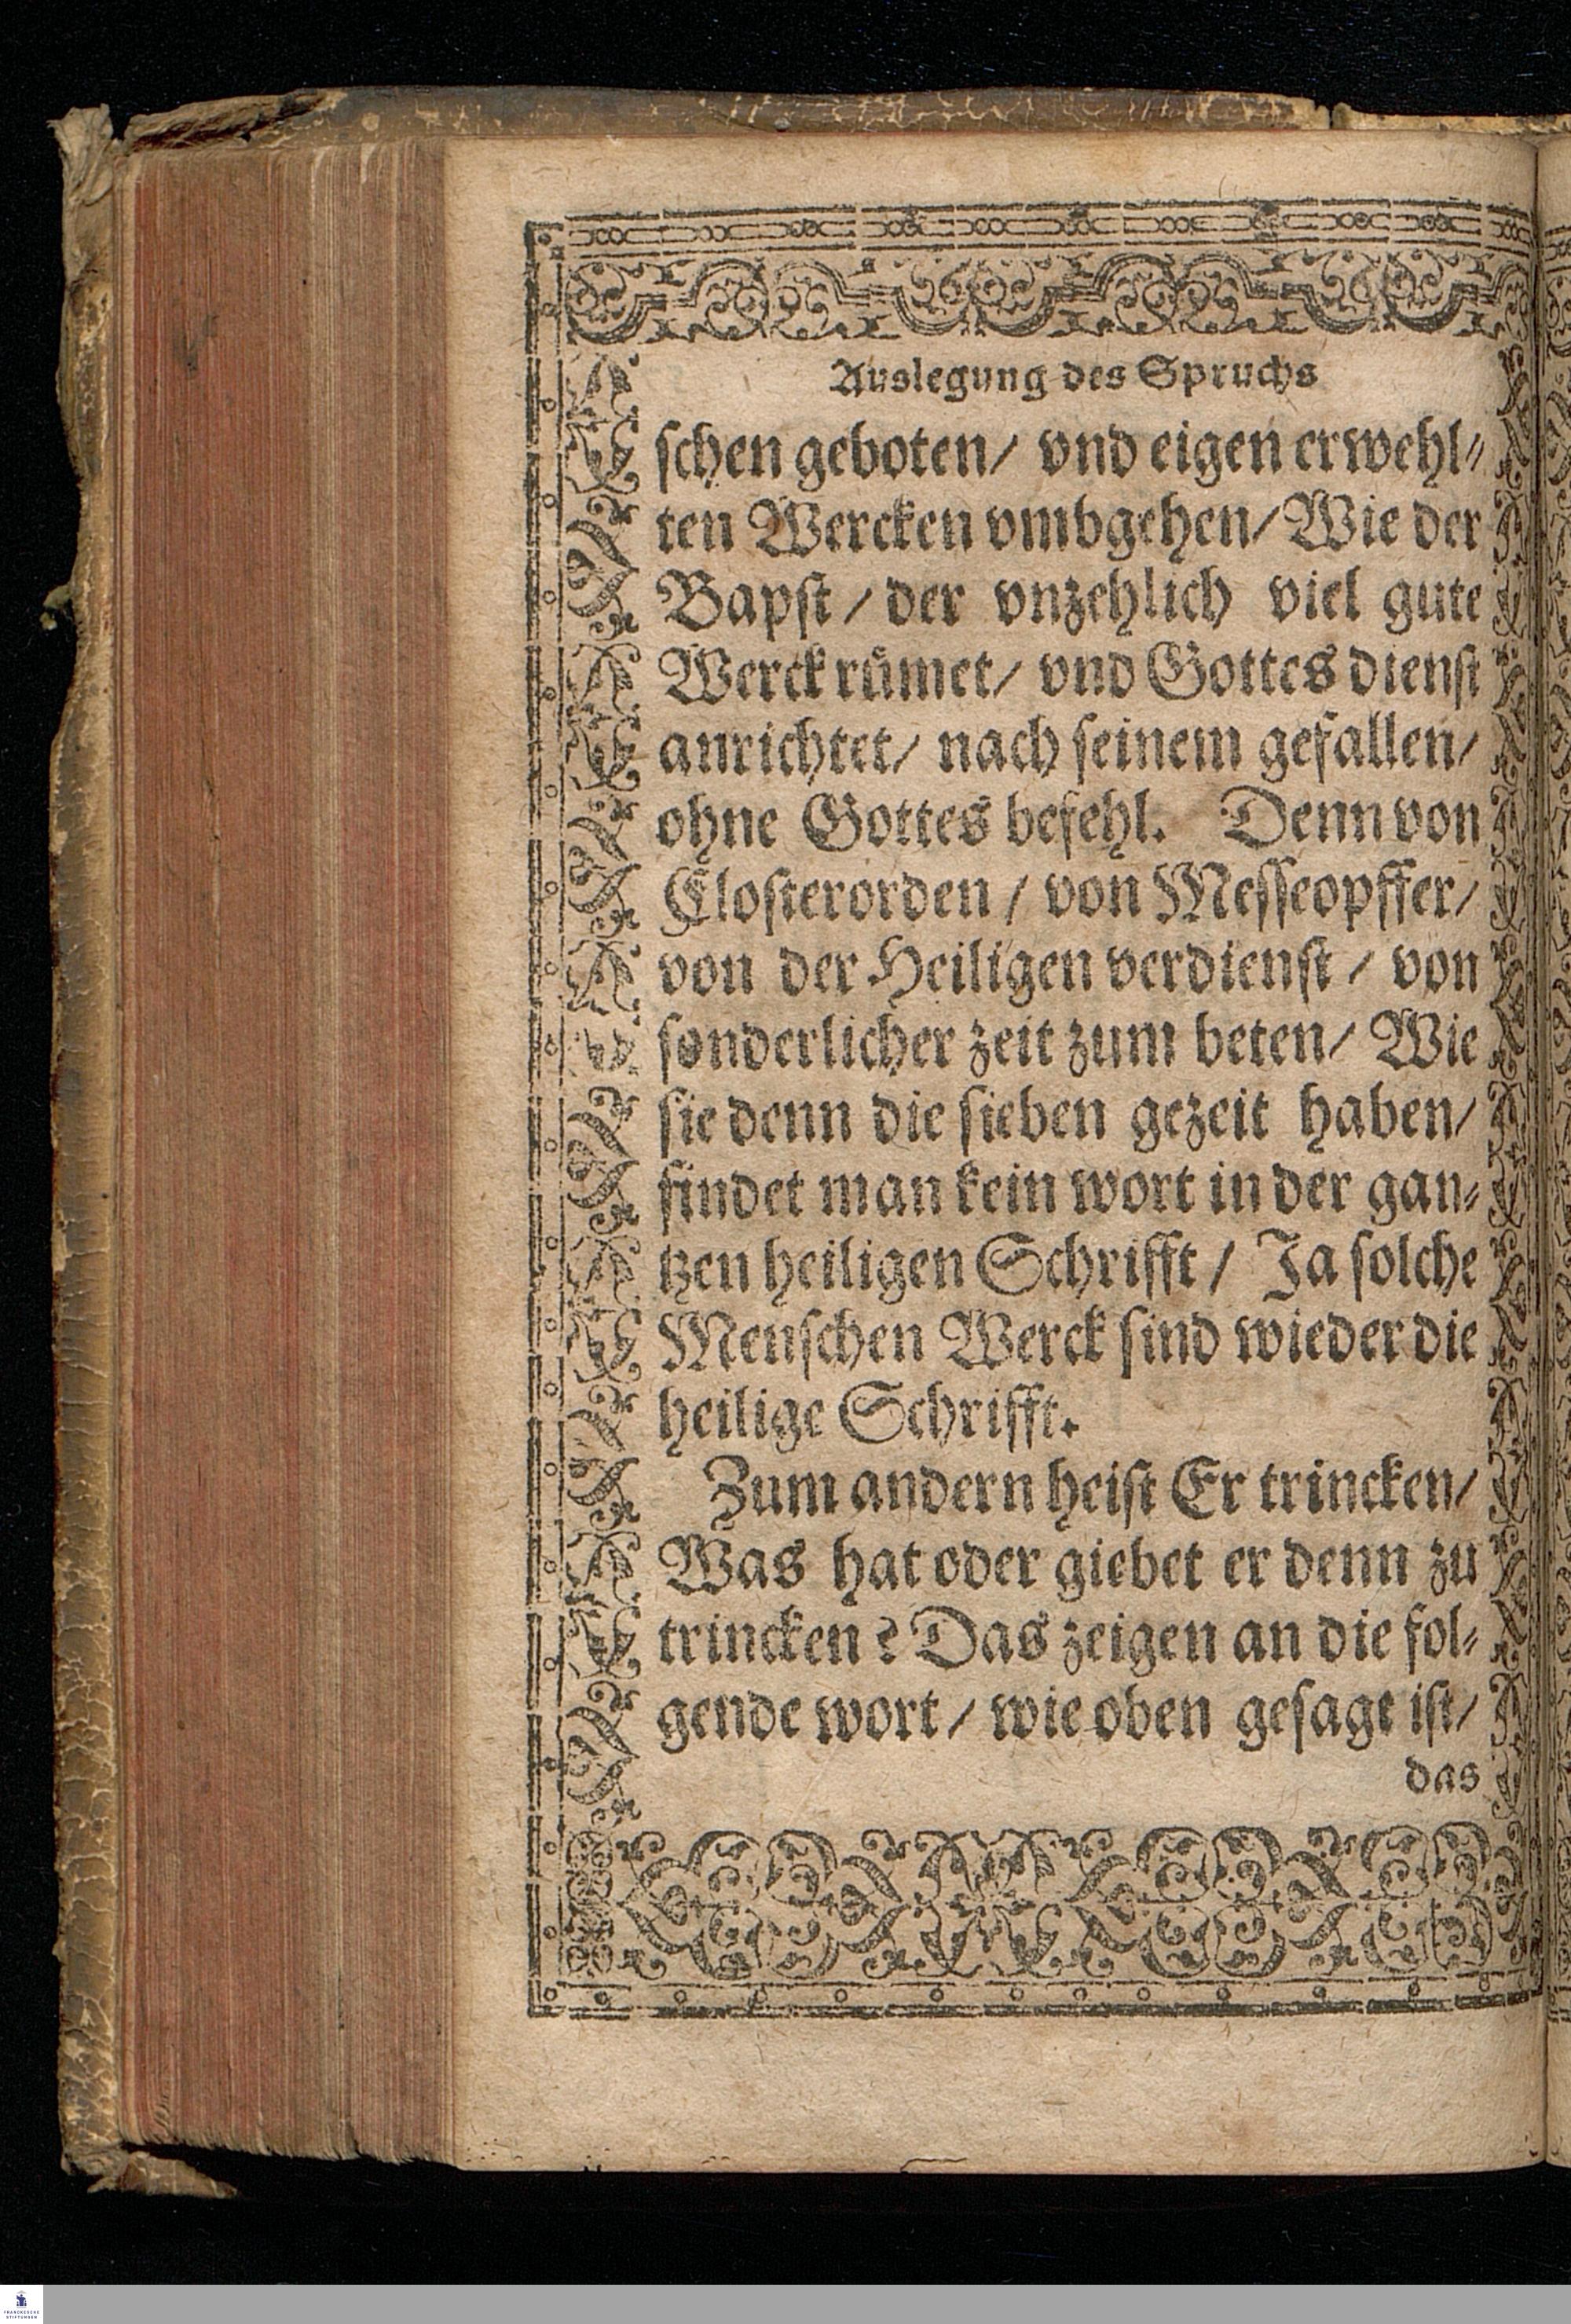 Auslegung des Spruchs
ſchen geboten/ vnd eigen erwehl⸗
ten Wercken vmbgehen/ Wie der
Bapſt/ der vnzehlich viel gute
Werck rümet/ vnd Gottes dienſt
anrichtet/ nach ſeinem gefallen/
ohne Gottes befehl. Denn von
Cloſterorden/ von Meſſeopffer/
von der Heiligen verdienſt/ von
ſonderlicher zeit zum beten/ Wie
ſie denn die ſieben gezeit haben/
findet man kein wort in der gan⸗
tzen heiligen Schrifft/ Ja ſolche
Menſchen Werck ſind wieder die
heilige Schrifft.
Zum andern heiſt Er trincken/
Was hat oder giebet er denn zu
trincken? Das zeigen an die fol⸗
gende wort/ wie oben geſagt iſt/
das
FRANCKESCHE
STIFTUNGEN